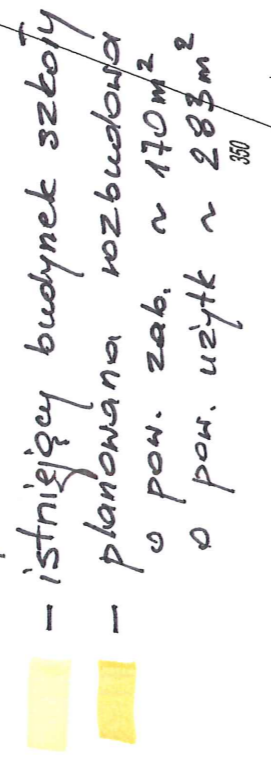 – istniejący budynek szkoły
– planowana rozbudowa
o pow. zab. ~ 170 m²
o pow. użytk ~ 283 m²
350